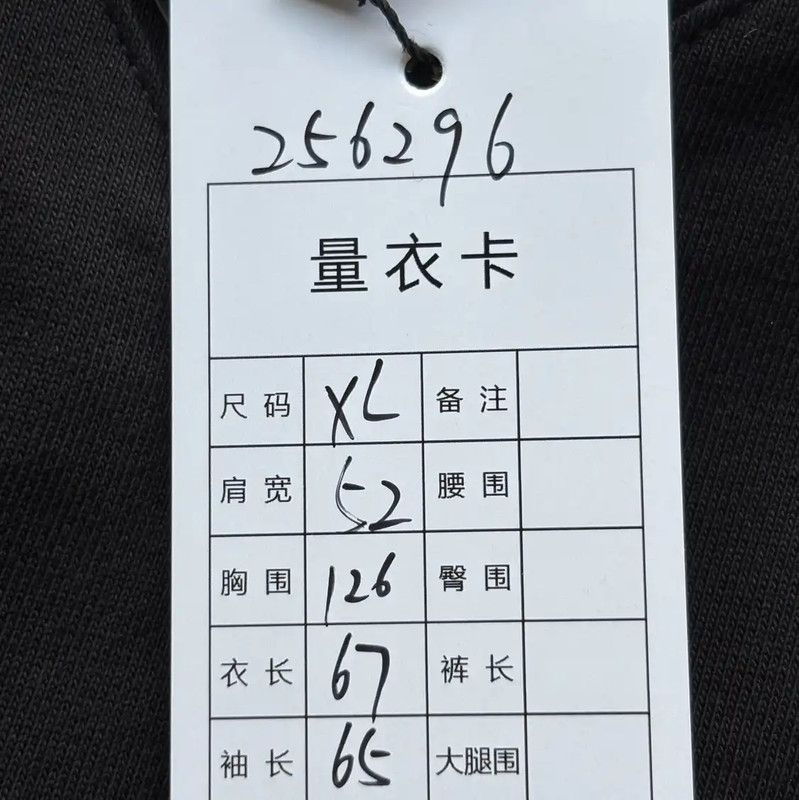 256296
量衣卡
尺码 XL 备注
肩宽 52 腰围
胸围 126 臀围
衣长 67 裤长
袖长 65 大腿围